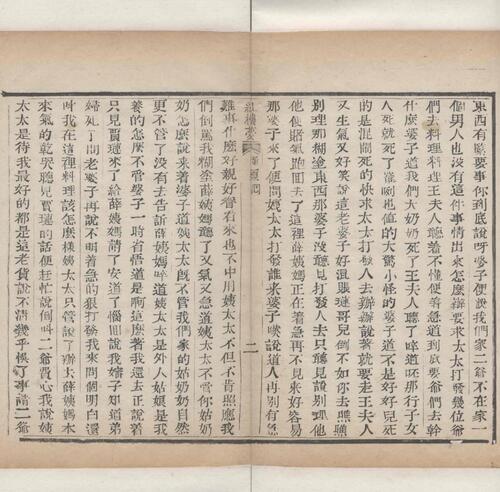 東西有緊要事你到底說呀婆子便說我們家二爺不在家一
個男人也没有這件事情出來怎麽辦要求太太打發幾位爺
們去料理料理王夫人聽着不懂便着急道到底要爺們去幹
什麽婆子道我們大奶奶死了王夫人聽了啐道呸那行子女
人死就死了罷咧也值的大驚小怪的婆子道不是好好兒死
的是混鬧死的快求太太打發人去辦辦說着就要走王夫人
又生氣又好笑說這老婆子好混賬璉哥兒倒不如你去瞧瞧
別理那糊塗東西那婆子没聽見打發人去只聽見說別理他
他便賭氣跑回去了這裡薛姨媽正在着急再不見來好容易
那婆子來了便問姨太太打發誰來婆子嘆說道人再別有急
紅樓夢 第 回
二
難事什麽好親好眷看來也不中用姨太太不但不肯照應我
們倒罵我糊塗薛姨媽聽了又氣又急道姨太太不管你姑奶
奶怎麽說來着婆子道姨太太既不管我們家的姑奶奶自然
更不管了没有去告訴薛姨媽啐道姨太太是外人姑娘是我
養的怎麽不管婆子一時省悟道是啊這麽着我還去正說着
只見賈璉來了給薛姨媽請了安道了惱回說我嬸子知道弟
婦死了問老婆子再說不明着急的狠打發我來問個明白還
叫我在這裡料理該怎麽樣姨太太只管說了辦去薛姨媽本
來氣的乾哭聽見賈璉的話便赶忙說倒叫二爺費心我說姨
太太是待我最好的都是這老貨說不清幾乎悞了事請二爺